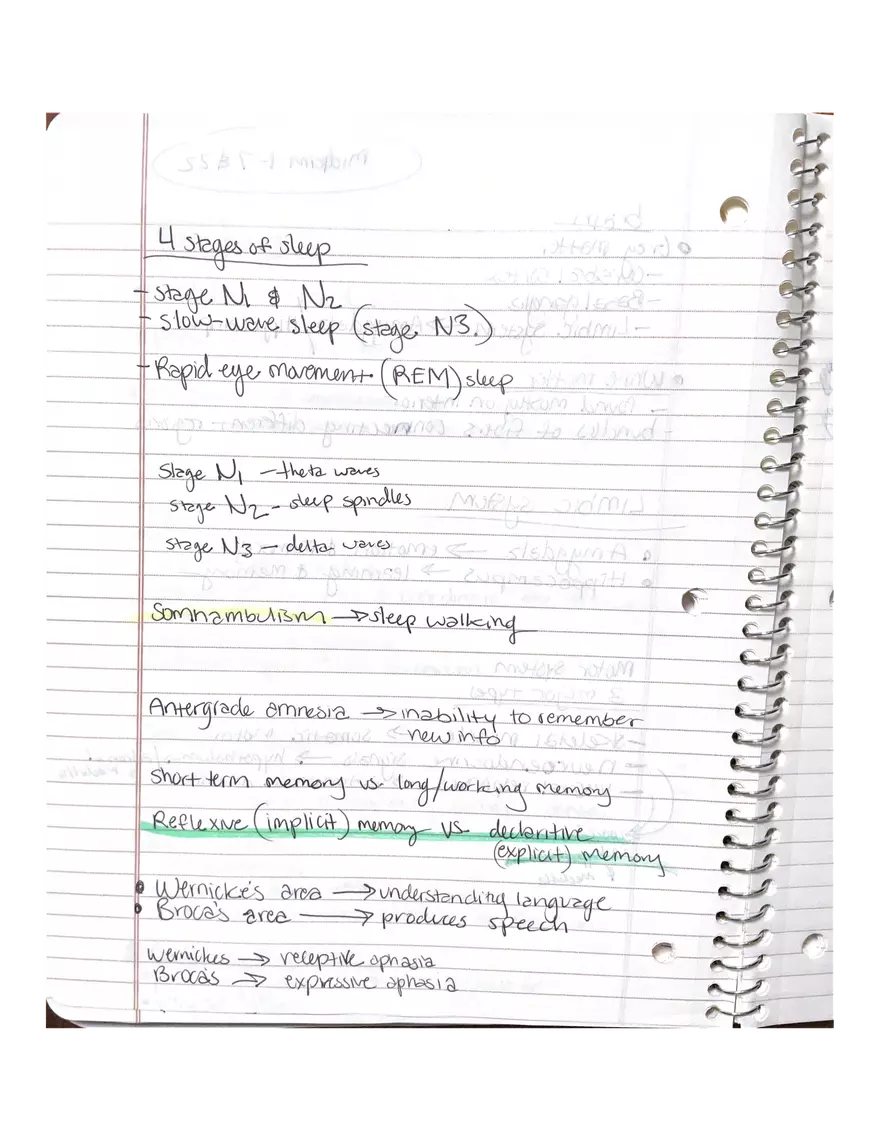 4 stages of sleep
- stage N1 & N2
- slow-wave sleep (stage N3)
- Rapid eye movement (REM) sleep
Stage N1 - theta waves
stage N2 - sleep spindles
stage N3 - delta waves
Somnambulism → sleep walking
Antergrade amnesia → inability to remember
new info
Short term memory vs. long/working memory
Reflexive (implicit) memory vs declaritive
(explicit) memory
• Wernicke's area → understanding language
• Broca's area → produces speech
Wernickes → receptive aphasia
Broca's → expressive aphasia